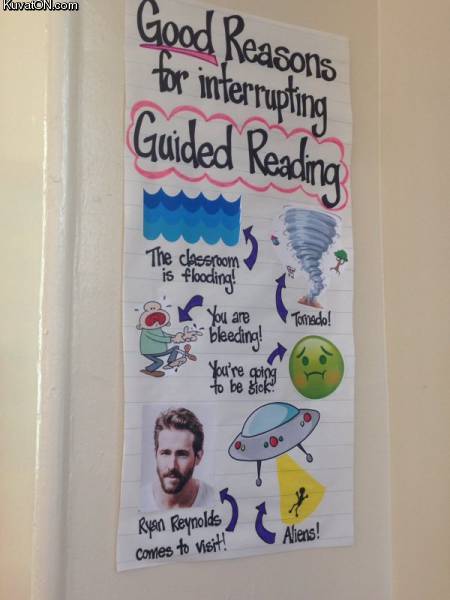 KuvatON.com
Good Reasons
for interrupting
Guided Reading
The classroom
is flooding!
Tornado!
You are
bleeding!
You're going
to be sick.
Ryan Reynolds
comes to visit!
Aliens!